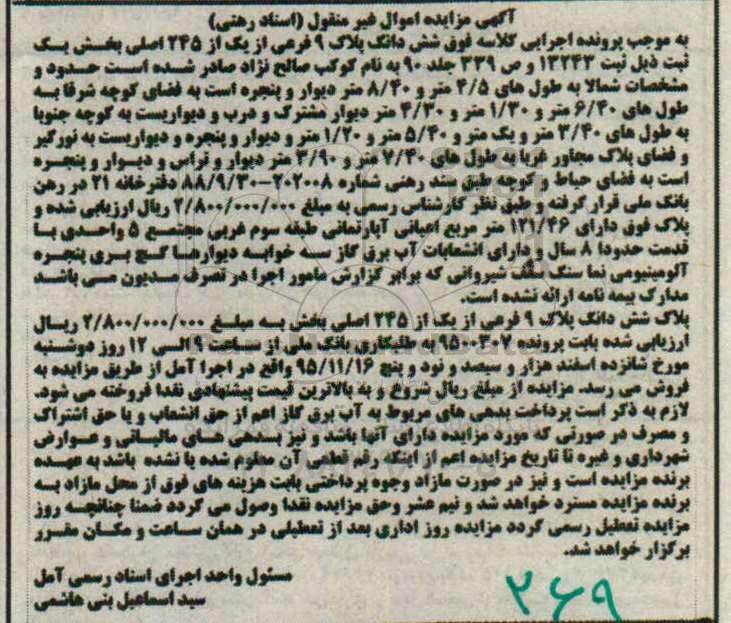 آگهی مزایده اموال غیر منقول (اسناد رهنی)
به موجب پرونده اجرایی کلاسه فوق شش دانگ پلاک ۹ فرعی از یک از ۲۴۵ اصلی بخش یک
ثبت ذیل ثبت ۱۳۲۴۳ و ص ۳۳۹ جلد ۹۰ به نام کوکب صالح نژاد صادر شده است حدود و
مشخصات شمالا به طول های ۴/۵ متر و ۸/۴۰ متر دیوار و پنجره است به فضای کوچه شرقا به
طول های ۶/۴۰ متر و ۱/۳۰ متر و ۴/۳۰ متر دیوار مشترک و درب و دیواریست به کوچه جنوبا
به طول های ۳/۴۰ متر و یک متر و ۵/۴۰ متر و ۱/۲۰ متر و دیوار و پنجره و دیواریست به نورگیر
و فضای پلاک مجاور غربا به طول های ۷/۴۰ متر و ۳/۹۰ متر دیوار و تراس و دیوار و پنجره
است به فضای حیاط و کوچه طبق سند رهنی شماره ۲۰۲۰۰۸-۸۸/۹/۳۰ دفترخانه ۲۱ در رهن
بانک ملی قرار گرفته و طبق نظر کارشناس رسمی به مبلغ ۲/۸۰۰/۰۰۰/۰۰۰ ریال ارزیابی شده و
پلاک فوق دارای ۱۲۱/۴۶ متر مربع اعیانی آپارتمانی طبقه سوم غربی مجتمع ۵ واحدی با
قدمت حدودا ۸ سال و دارای انشعابات آب برق گاز سه خوابه دیوارها گچ بری پنجره
آلومینیومی نما سنگ سقف شیروانی که برابر گزارش مامور اجرا در تصرف مدیون می باشد
مدارک بیمه نامه ارائه نشده است.
پلاک شش دانگ پلاک ۹ فرعی از یک از ۲۴۵ اصلی بخش به مبلغ ۲/۸۰۰/۰۰۰/۰۰۰ ریال
ارزیابی شده بابت پرونده ۹۵۰۰۳۰۷ به طلبکاری بانک ملی از ساعت ۹ الی ۱۲ روز دوشنبه
مورخ شانزده اسفند هزار و سیصد و نود و پنج ۹۵/۱۱/۱۶ واقع در اجرا آمل از طریق مزایده به
فروش می رسد. مزایده از مبلغ ریال شروع و به بالاترین قیمت پیشنهادی نقدا فروخته می شود.
لازم به ذکر است پرداخت بدهی های مربوط به آب برق گاز اعم از حق انشعاب و یا حق اشتراک
و مصرف در صورتی که مورد مزایده دارای آنها باشد و نیز بدهی های مالیاتی و عوارض
شهرداری و غیره تا تاریخ مزایده اعم از اینکه رقم قطعی آن معلوم شده یا نشده باشد به عهده
برنده مزایده است و نیز در صورت مازاد وجوه پرداختی بابت هزینه های فوق از محل مازاد به
برنده مزایده مسترد خواهد شد و نیم عشر وحق مزایده نقدا وصول می گردد ضمنا چنانچه روز
مزایده تعطیل رسمی گردد مزایده روز اداری بعد از تعطیلی در همان ساعت و مکان مقرر
برگزار خواهد شد.
مسئول واحد اجرای اسناد رسمی آمل
سید اسماعیل بنی هاشمی
۳۶۹